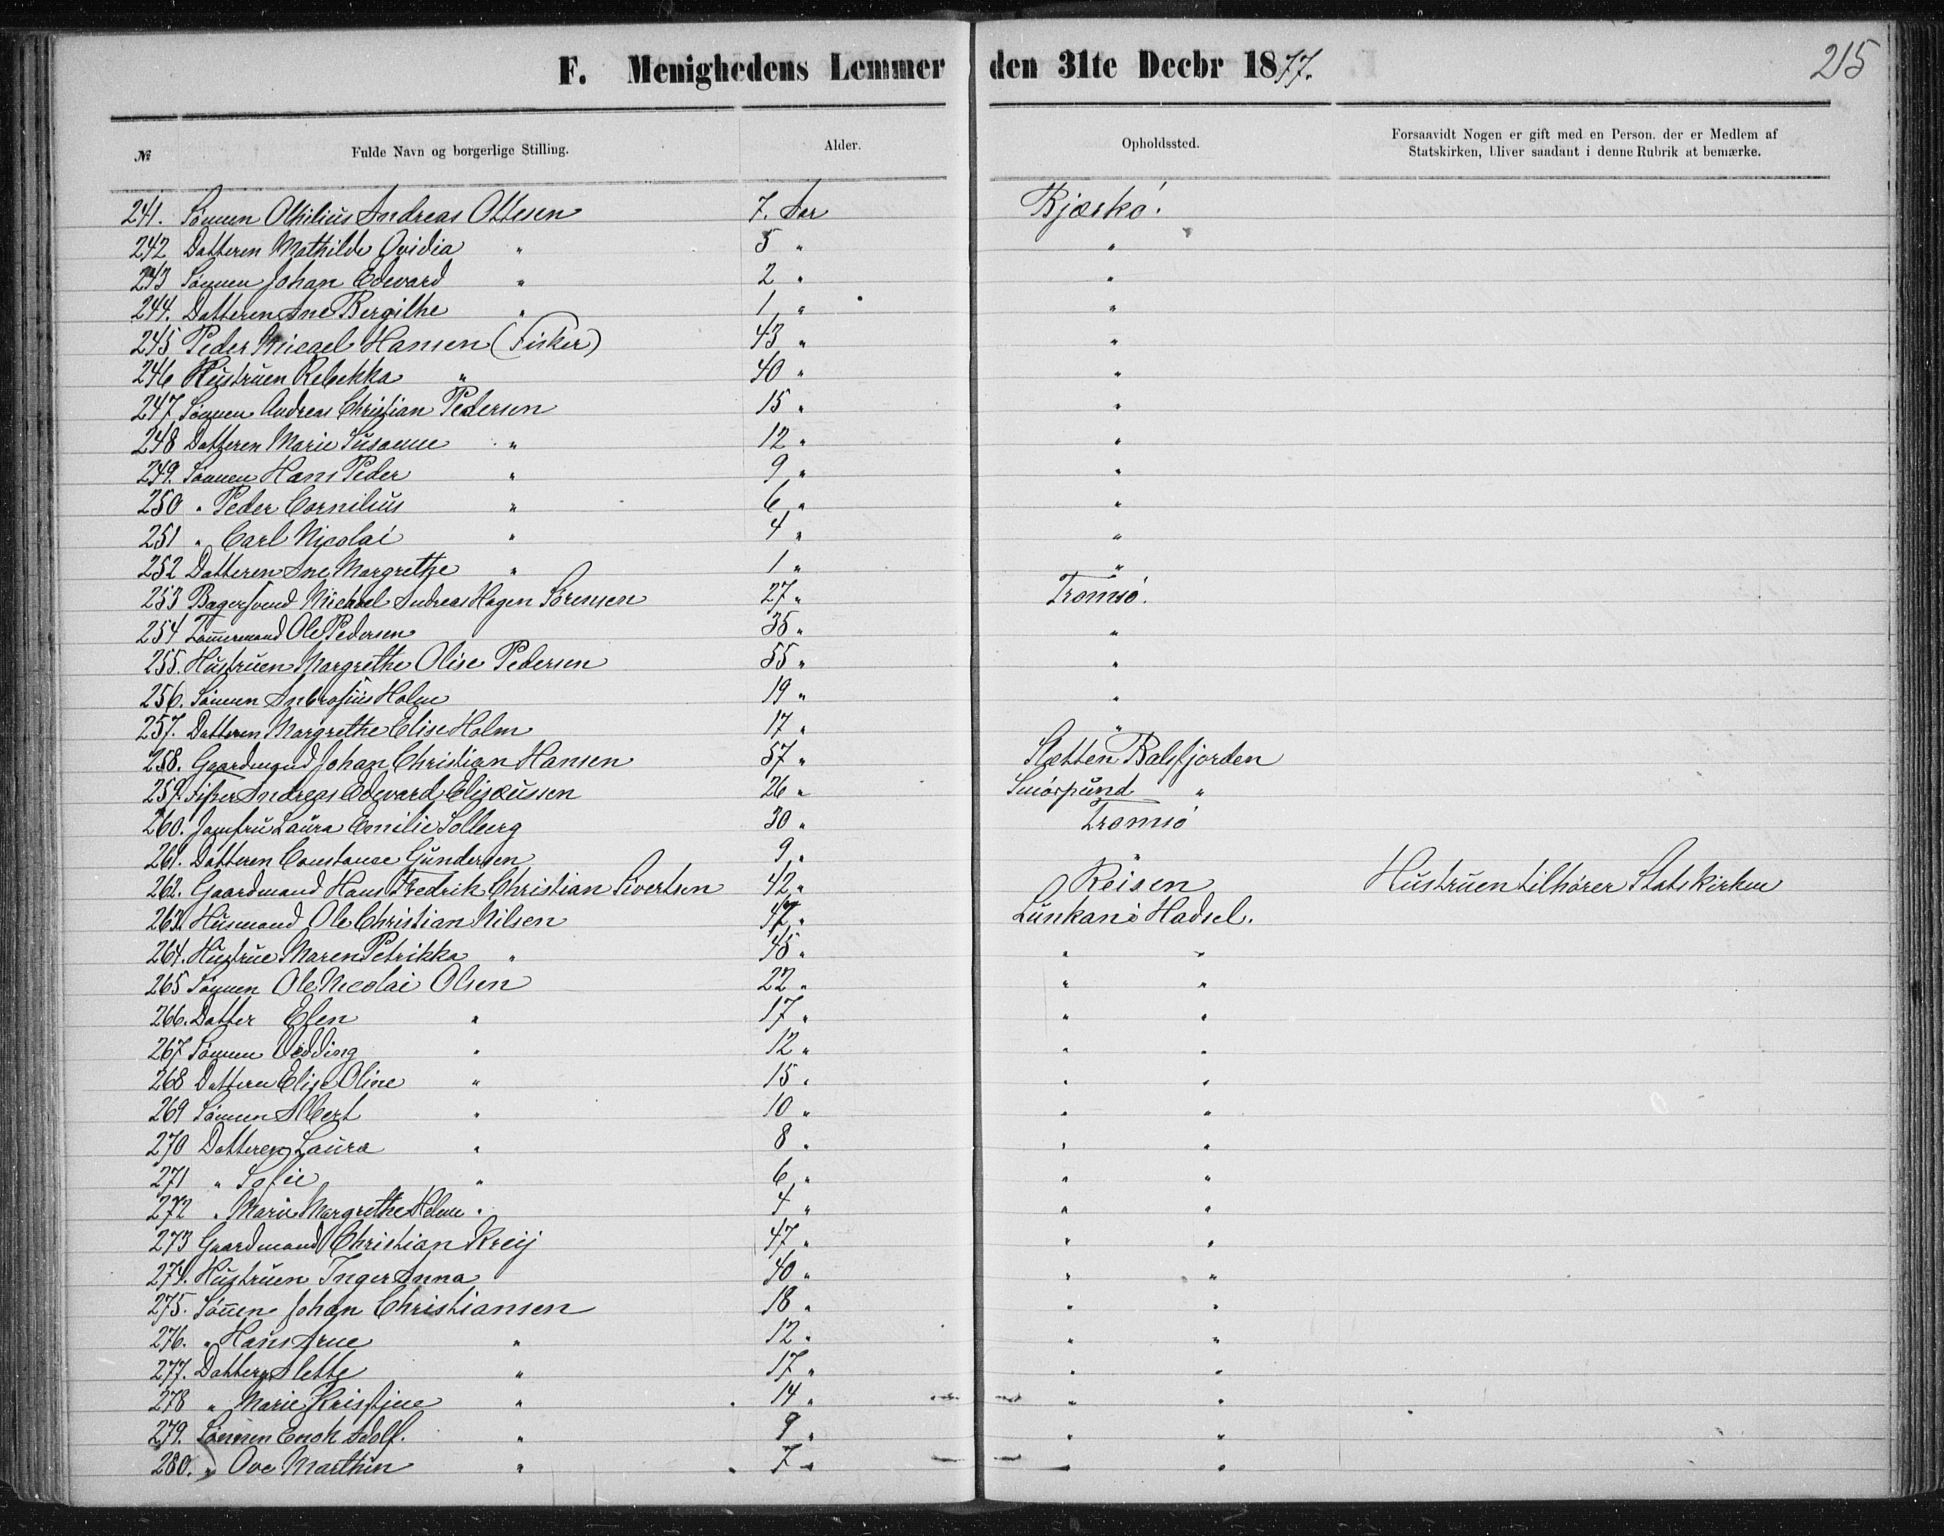 F. Menighedens Lemmer den 31te Decbr 1877. 215
№ Fulde Navn og borgerlige Stilling. Alder. Opholdssted. Forsaavidt Nogen er gift med en Person, der er Medlem af
Statskirken, bliver saadant i denne Rubrik at bemærke.
241. Sønnen Othilius Andreas Ottesen 7. Aar Bjarkö.
242 Datteren Mathilde Ovidia " 5 " "
243 Sønnen Johan Edevard " 2 " "
244. Datteren Ane Bergithe " 1 " "
245 Peder Micael Hansen (Fisker) 43 " "
246 Hustruen Rebekka " 40 " "
247. Sønnen Andreas Christian Pedersen 15 " "
248 Datteren Marie Susanne " 12 " "
249. Sønnen Hans Peder " 9 " "
250 " Peder Cornilius " 6 " "
251 " Carl Nicolai " 4 " "
252 Datteren Ane Margrethe " 1 " "
253 Bagersvend Michael Andreas Hagen Sørensen 27 " Tromsö.
254 Tømermand Ole Pedersen 35 " "
255. Hustruen Margrethe Olise Pedersen 55 " "
256. Sønnen Ambrosius Holm 19 " "
257. Datteren Margrethe Elise Holm 17 " "
258. Gaardmand Johan Christian Hansen 57 " Sletten Balsfjorden
259. Fisker Andreas Edevard Elisæussen 26 " Smörsund "
260. Jomfru Laura Emilie Solberg 30 " Tromsö
261. Datteren Constanse Gundersen 9 " "
262. Gaardmand Hans Fredrik Christian Sivertsen 42 " Reisen Hustruen tilhører Statskirken
263. Husmand Ole Christian Nilsen 47 " Lunkan i Hadsel.
264. Hustrue Maren Petrikka " 45 " " "
265 Sønnen Ole Nicolai Olsen 22 " " "
266. Datter Elen " 17 " " "
267 Sønnen Vedding " 12 " " "
268 Datteren Elise Oline " 15 " " "
269 Sønnen Albert " 10 " " "
270 Datteren Laura " 8 " " "
271 " Sofie " 6 " " "
272 " Marie Margrethe Holm " 4 " " "
273 Gaardmand Christian Kreij 47 " " "
274. Hustruen Inger Anna 40 " " "
275. Sønen Johan Christiansen 18 " " "
276. " Hans Arne " 12 " " "
277. Datteren Alette " 17 " " "
278 " Marie Kristine " 14 " " "
279. Sønnen Enok Adolf. " 9 " " "
280. " Ove Marthin " 7 " " "